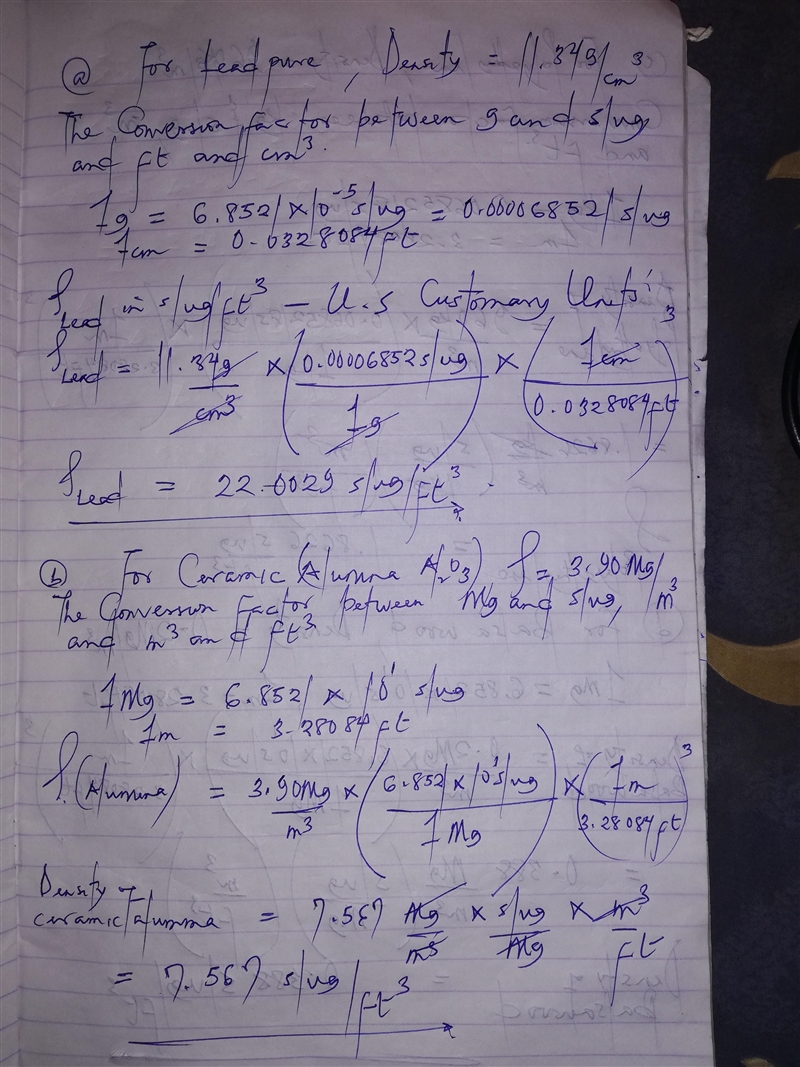 (a) For Lead pure, Density = 11.34g/cm³
The Conversion factor between g and slug
and ft and cm³.
1g = 6.8521 × 10⁻⁵ slug = 0.000068521 slug
1cm = 0.0328084 ft
ρ Lead in slug/ft³ — U.S Customary Units'
ρ Lead = 11.34g/cm³ × (0.00006852 slug/1g) × (1cm/0.0328084 ft)³
ρ Lead = 22.0029 slug/ft³.
(b) For Ceramic (Alumina Al₂O₃) ρ = 3.90 Mg/m³
The Conversion Factor between Mg and slug,
and m³ and ft³
1Mg = 6.8521 × 10¹ slug
1m = 3.28084 ft
ρ (Alumina) = 3.90Mg/m³ × (6.8521 × 10¹ slug/1 Mg) × (1m/3.28084 ft)³
Density of
ceramic Alumina = 7.567 Mg/m³ × slug/Mg × m³/ft
= 7.567 slug/ft³